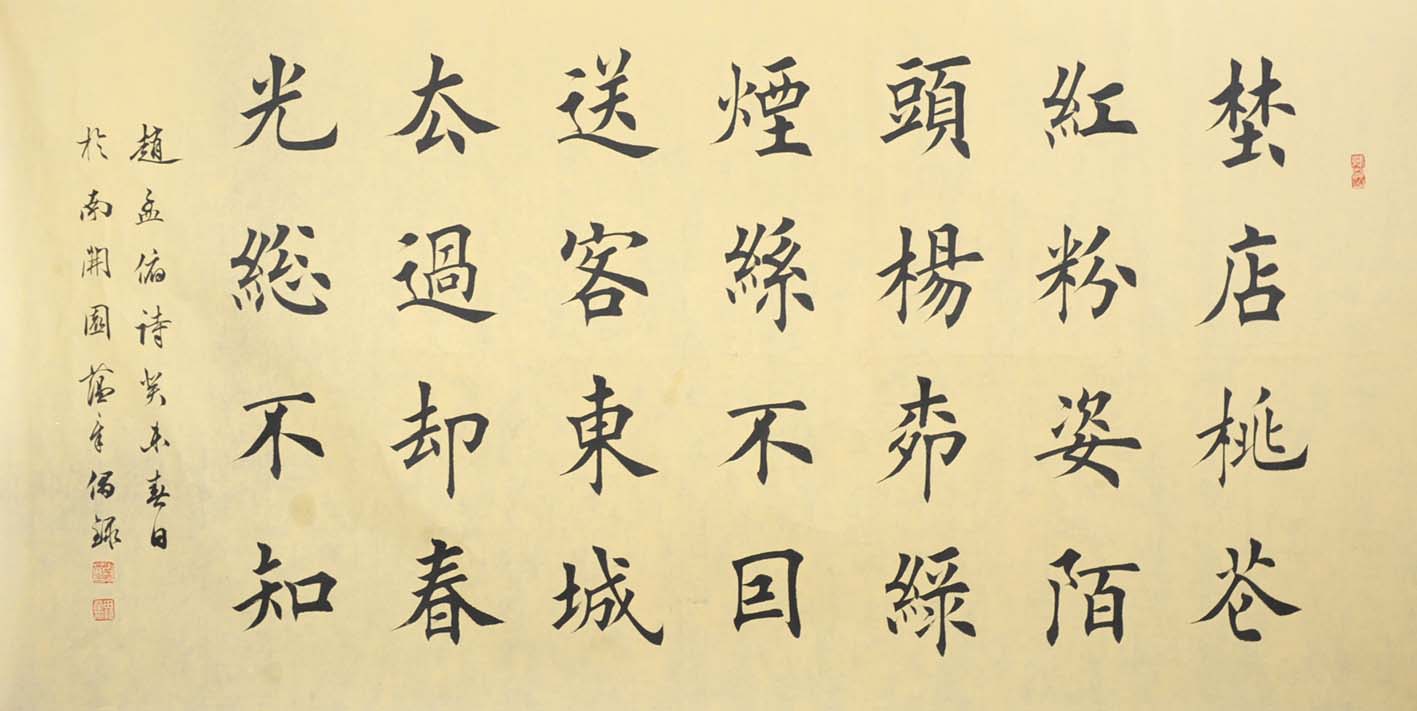 埜店桃花
紅粉姿陌
頭楊柳緑
煙絲不囙
送客東城
厺過却春
光総不知
趙孟俯詩癸未春日
於南開園偶録